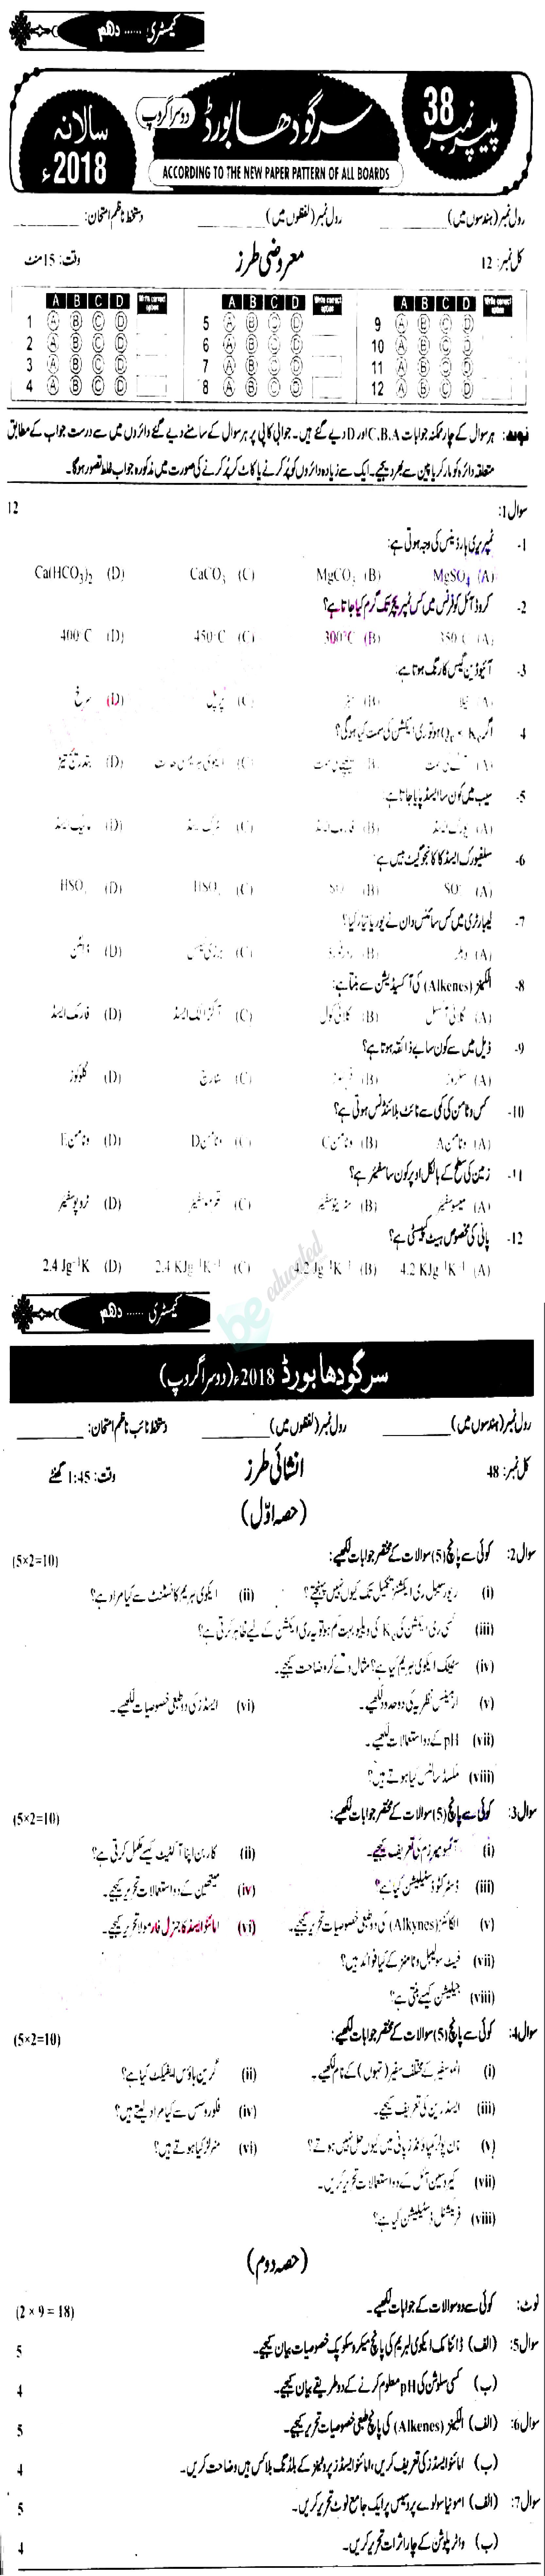 کیمسٹری ...... دہم
سالانہ 2018ء دوسرا گروپ سرگودھا بورڈ پیپر نمبر 38
ACCORDING TO THE NEW PAPER PATTERN OF ALL BOARDS
رول نمبر (ہندسوں میں) ________ رول نمبر (لفظوں میں) ________ دستخط ناظم امتحان: ________
کل نمبر: 12 معروضی طرز وقت: 15 منٹ
A B C D Write correct option A B C D Write correct option A B C D Write correct option
1 A B C D 5 A B C D 9 A B C D
2 A B C D 6 A B C D 10 A B C D
3 A B C D 7 A B C D 11 A B C D
4 A B C D 8 A B C D 12 A B C D
نوٹ: ہر سوال کے چار ممکنہ جوابات C،B،A اور D دیے گئے ہیں۔ جوابی کاپی پر ہر سوال کے سامنے دیے گئے دائروں میں سے درست جواب کے مطابق
متعلقہ دائرہ کو مارکر یا پین سے بھر دیجیے۔ ایک سے زیادہ دائروں کو پُر کرنے یا کاٹ کر پُر کرنے کی صورت میں مذکورہ جواب غلط تصور ہوگا۔
سوال 1: 12
1- ٹمپریری ہارڈنیس کی وجہ ہوتی ہے:
(A) MgSO4 (B) MgCO3 (C) CaCO3 (D) Ca(HCO3)2
2- کروڈ آئل کو فرنس میں کس ٹمپریچر تک گرم کیا جاتا ہے؟
(A) 350°C (B) 300°C (C) 450°C (D) 400°C
3- آئیوڈین گیس کا رنگ ہوتا ہے:
(A) (B) (C) پرپل (D) سرخ
4 اگر Qc < Kc ہو تو ری ایکشن کی سمت کیا ہوگی؟
(A) (B) پیچھے کی سمت (C) (D) بتدریج تیز
5- سیب میں کون سا ایسڈ پایا جاتا ہے:
(A) (B) فارمک ایسڈ (C) (D) مالیک ایسڈ
6- سلفیورک ایسڈ کا کانجوگیٹ بیس ہے:
(A) (B) (C) (D)
7- لیبارٹری میں کس سائنس دان نے یوریا تیار کیا؟
(A) وہلر (B) (C) برزیلیئس (D) ڈالٹن
8- الکینز (Alkenes) کی آکسیڈیشن سے بنتا ہے:
(A) گلائی آکسل (B) گلائی کول (C) آگزالک ایسڈ (D) فارمک ایسڈ
9- ذیل میں سے کون سا بے ذائقہ ہوتا ہے؟
(A) سکروز (B) (C) سٹارچ (D) گلوکوز
10- کس وٹامن کی کمی سے نائٹ بلائنڈنس ہوتی ہے؟
(A) وٹامن A (B) وٹامن C (C) وٹامن D (D) وٹامن E
11- زمین کی سطح کے بالکل اوپر کون سا سفیئر ہے؟
(A) میسوسفیئر (B) سٹریٹوسفیئر (C) تھرموسفیئر (D) ٹروپوسفیئر
12- پانی کی مخصوص ہیٹ کپیسٹی ہے؟
(A) 4.2 KJg⁻¹K⁻¹ (B) 4.2 Jg⁻¹K⁻¹ (C) 2.4 KJg⁻¹K⁻¹ (D) 2.4 Jg⁻¹K
be educated
کیمسٹری ...... دہم
سرگودھا بورڈ 2018ء (دوسرا گروپ)
رول نمبر (ہندسوں میں) ________ رول نمبر (لفظوں میں) ________ دستخط نائب ناظم امتحان: ________
کل نمبر: 48 انشائی طرز وقت: 1:45 گھنٹے
(حصہ اوّل)
سوال 2: کوئی سے پانچ (5) سوالات کے مختصر جوابات لکھیے: (5×2=10)
(i) ریورسیبل ری ایکشنز تکمیل تک کیوں نہیں پہنچتے؟ (ii) ایکوی لبریم کانسٹنٹ سے کیا مراد ہے؟
(iii) کسی ری ایکشن کی Kc کی ویلیو بہت کم ہو تو یہ ری ایکشن کے لیے ظاہر کرتی ہے؟
(iv) سٹیٹک ایکوی لبریم کیا ہے؟ مثال دے کر وضاحت کیجیے۔
(v) آرہینیس نظریہ کی دو حدود لکھیے۔ (vi) ایسڈز کی دو طبعی خصوصیات لکھیے۔
(vii) pH کے دو استعمالات لکھیے۔
(viii) مکسڈ سالٹس کیا ہوتے ہیں؟
سوال 3: کوئی سے پانچ (5) سوالات کے مختصر جوابات لکھیے: (5×2=10)
(i) آئسومیرزم کی تعریف کیجیے۔ (ii) کاربن اپنا آکٹیٹ کیسے مکمل کرتی ہے؟
(iii) ڈسٹرکٹو ڈسٹیلیشن کیا ہے؟ (iv) میتھین کے دو استعمالات تحریر کیجیے۔
(v) الکائنز (Alkynes) کی دو طبعی خصوصیات تحریر کیجیے۔ (vi) امائنو ایسڈ کا جنرل فارمولا تحریر کیجیے۔
(vii) فیٹ سولیبل وٹامنز کے کیا فوائد ہیں؟
(viii) جیلیٹن کیسے بنتی ہے؟
سوال 4: کوئی سے پانچ (5) سوالات کے مختصر جوابات لکھیے: (5×2=10)
(i) اٹموسفیئر کے مختلف سفیئر (تہوں) کے نام لکھیے۔ (ii) گرین ہاؤس ایفیکٹ کیا ہے؟
(iii) ایسڈ رین کی تعریف کیجیے۔ (iv) فلوروسس سے کیا مراد لیتے ہیں؟
(v) نان پولر کمپاؤنڈز پانی میں کیوں حل نہیں ہوتے؟ (vi) منرلز کیا ہوتے ہیں؟
(vii) کیروسین آئل کے دو استعمالات تحریر کریں۔
(viii) فریکشنل ڈسٹیلیشن کیا ہے؟
(حصہ دوم)
نوٹ: کوئی سے دو سوالات کے جوابات لکھیے۔ (2 × 9 = 18)
سوال 5: (الف) ڈائنامک ایکوی لبریم کی پانچ میکروسکوپک خصوصیات بیان کیجیے۔ 5
(ب) کسی سلوشن کی pH معلوم کرنے کے دو طریقے بیان کیجیے۔ 4
سوال 6: (الف) الکینز (Alkenes) کی پانچ طبعی خصوصیات تحریر کیجیے۔ 5
(ب) امائنو ایسڈز کی تعریف کریں، امائنو ایسڈز پروٹینز کے بلڈنگ بلاکس ہیں وضاحت کریں۔ 4
سوال 7: (الف) امونیا سولوے پروسیس پر ایک جامع نوٹ تحریر کریں۔ 5
(ب) واٹر پلوشن کے چار اثرات تحریر کریں۔ 4